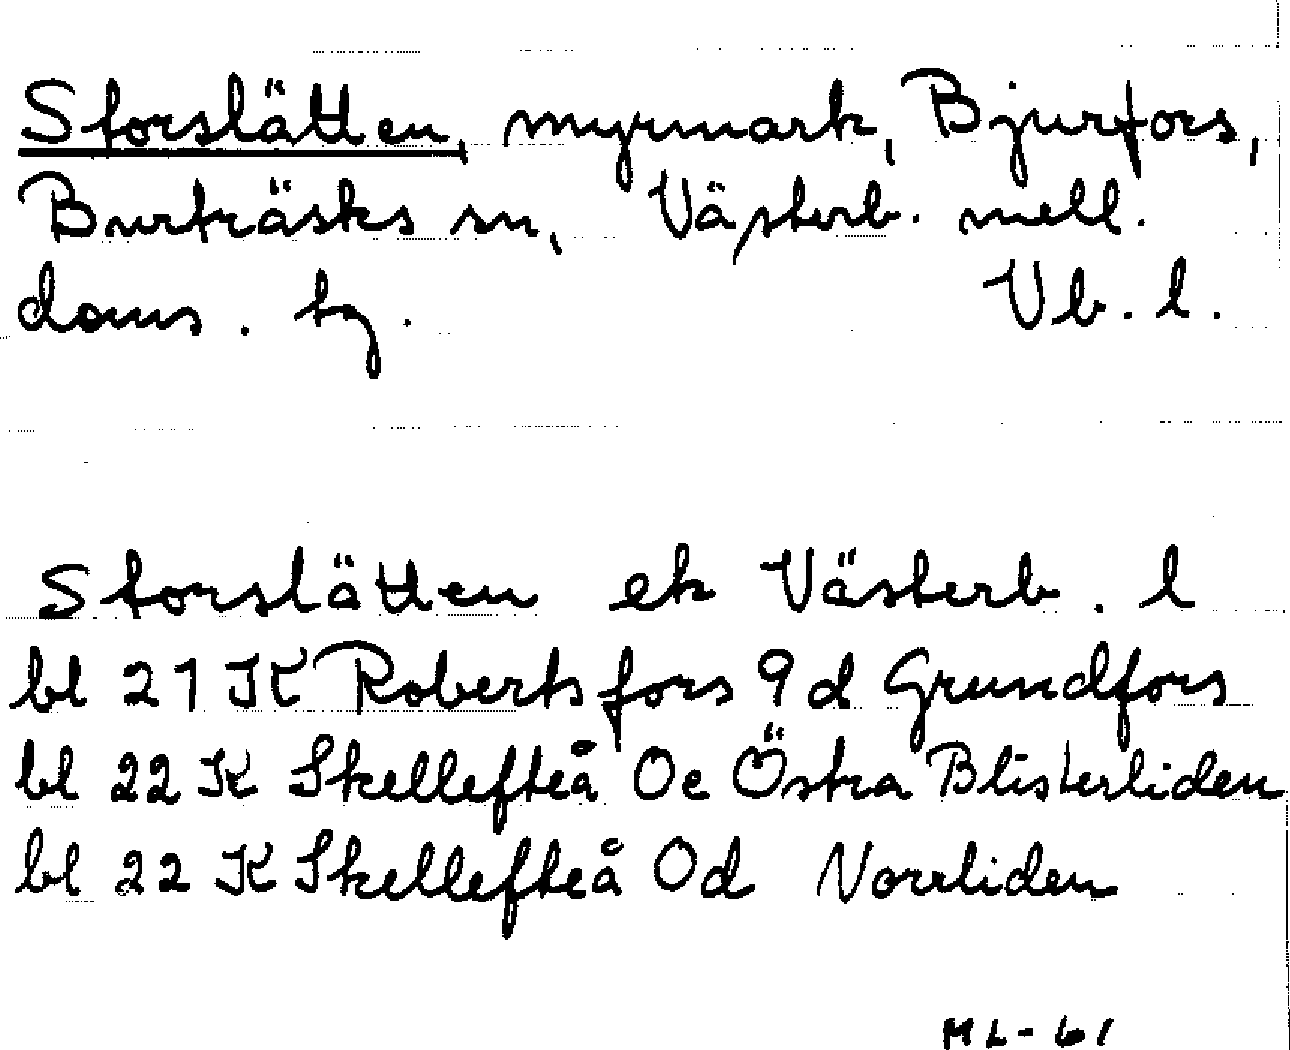 Storslätten, myrmark, Bjurfors,
Burträsks sn, Västerb. mell.
doms. tg. Vb. l.
Storslätten ek Västerb. l
bl 21 K Robertsfors 9d Grundfors
bl 22 K Skellefteå 0c Östra Blisterliden
bl 22 K Skellefteå 0d Norrliden
ML-61